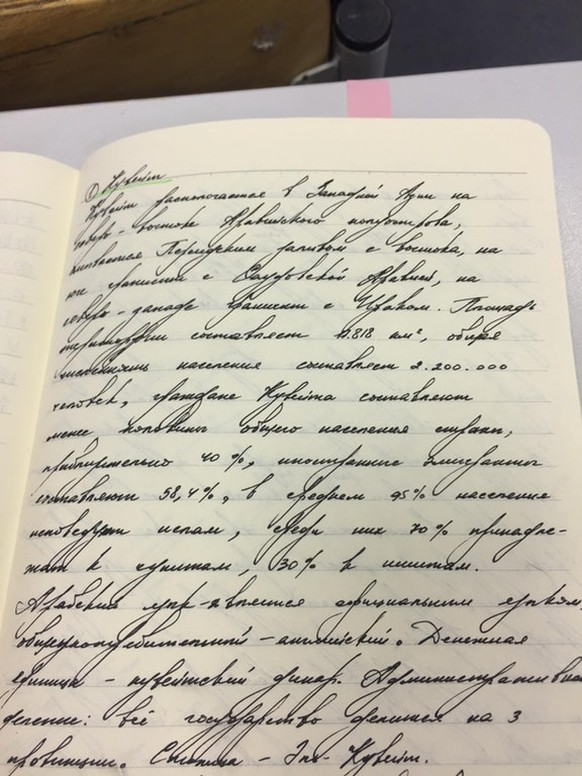 ① Кувейт
Кувейт располагается в Западной Азии на
северо-востоке Аравийского полуострова,
омывается Персидским заливом с востока, на
юге граничит с Саудовской Аравией, на
северо-западе граничит с Ираком. Площадь
территории составляет 17.818 км², общая
численность населения составляет 2.200.000
человек, граждане Кувейта составляют
менее половины общего населения страны,
приблизительно 40%, иностранные эмигранты
составляют 58,4%, в среднем 95% население
исповедует ислам, среди них 70% принадле-
жат к сунитам, 30% к шиитам.
Арабский язык является официальным языком,
общеупотребительной - английский. Денежная
единица - кувейтский динар. Административное
деление: всё государство делится на 3
провинции. Столица - Эль-Кувейт.